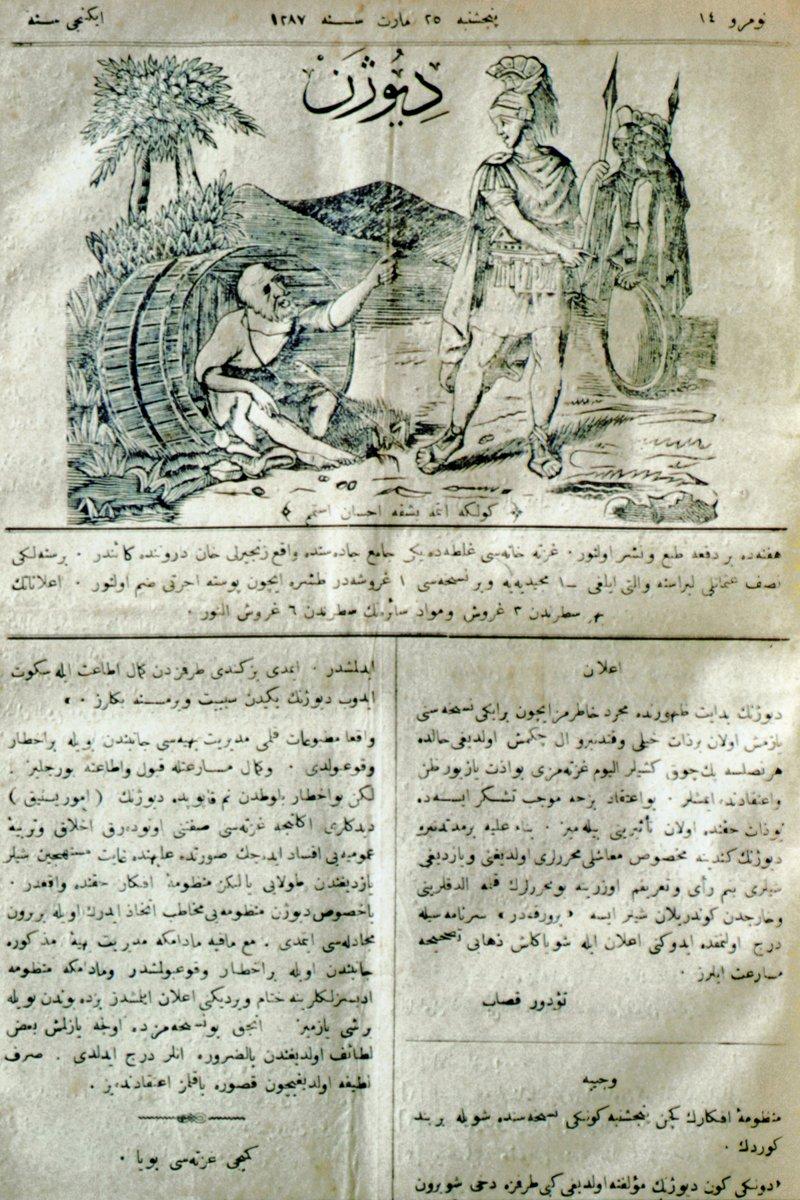 نومرو ١٤
پنجشنبه ٢٥ مارت سنه ١٢٨٧
ایکنجی سنه
دیوژن
﴿ کولکه ایتمه بشقه احسان استمم ﴾
هفته‌ده بر دفعه طبع ونشر اولنور ٠ غزته خانه‌سی غلطه‌ده یکی جامع جاده‌سنده واقع زنجیرلی خان دروننده کائندر ٠ برسنه‌لکی
نصف عثمانلی لیراسنه والتی ایلغی ١٠ مجیدیه‌یه وبر نسخه‌سی ١ غروشه‌در طشره ایچون پوسته اجرتی ضم اولنور ٠ اعلاناتك
بهر سطرندن ٣ غروش ومواد سائره‌نك سطرندن ٦ غروش النور ٠
اعلان
دیوژنك بدایت ظهورنده مجرد خاطرمز ایچون برایکی نسخه‌سی
یازمش اولان برذات خیلی وقتدنبرو ال چکمش اولدیغی حالده
هرنصلسه پك چوق کشیلر الیوم غزته‌مزی بوذات یازیور ظن
واعتقادنده ایمشلر ٠ بواعتقاد بزجه موجب تشکر ایسه‌ده
بوذات حقنده اولان تأثیرینی بیله‌میز ٠ بناء علیه برمدتدنبرو
دیوژنك کندینه مخصوص معاشلی محرری اولدیغنی ویازدیغی
شیلری بنم رأی وتعریفم اوزرینه بومحررك قلمه الدقلرینی
وخارجدن کوندریلان شیلر ایسه « برورقه‌در » سرنامه‌سیله
درج اولنمقده ایدوکنی اعلان ایله شو یاکلش ذهابی تصحیحه
مسارعت ایلرز ٠
تئودور قصاب
وجیه
منظومهٔ افکارك کچن پنجشنبه کونکی نسخه‌سنده شویله بر بند
کوردك ٠
«دونکی کون دیوژنك مؤلفنه اولدیغی کبی طرفمزه دخی شوبرون
ایدلمشدر ٠ ایمدی بز کندی طرفمزدن کمال اطاعت ایله سکوت
ایدوب دیوژنك یکیدن سببیت ویرمسنه بکلرز ٠ »
واقعا مطبوعات قلمی مدیریت بهیه‌سی جانبندن بویله براخطار
وقوعبولدی ٠ وکمال مسارعتله قبول واطاعته بورجلیز ٠
لکن بواخطار بلوطدن نم قاپوبده دیوژنك ( اموریستیق )
دیدکلری اکلنجه غزته‌سی صفتنی اونوده‌رق اخلاق وتربیهٔ
عمومیه‌یی افساد ایده‌جك صورتده علیهنده غایت مستهجن شیلر
یازدیغندن طولایی یالکز منظومهٔ افکار حقنده واقعدر ٠
باخصوص دیوژن منظومه‌یی مخاطب اتخاذ ایدرك اویله بربرون
مجادله‌سی ایتمدی ٠ مع مافیه مادامکه مدیریت بهیهٔ مذکوره
جانبندن اویله براخطار وقوعبولمشدر ومادامکه منظومه
ادبسزلکلرینه ختام ویردیکنی اعلان ایلمشدر بزده بوندن بویله
برشی یازمیز ٠ انجق بونسخه‌مزده اولجه یازلمش بعض
لطائف اولدیغندن بالضروره انلر درج ایدلدی ٠ صرف
لطیفه اولدیغیچون قصوره باقلمز اعتقادنده‌یز ٠
کیجی غزته‌سی بویا ٠